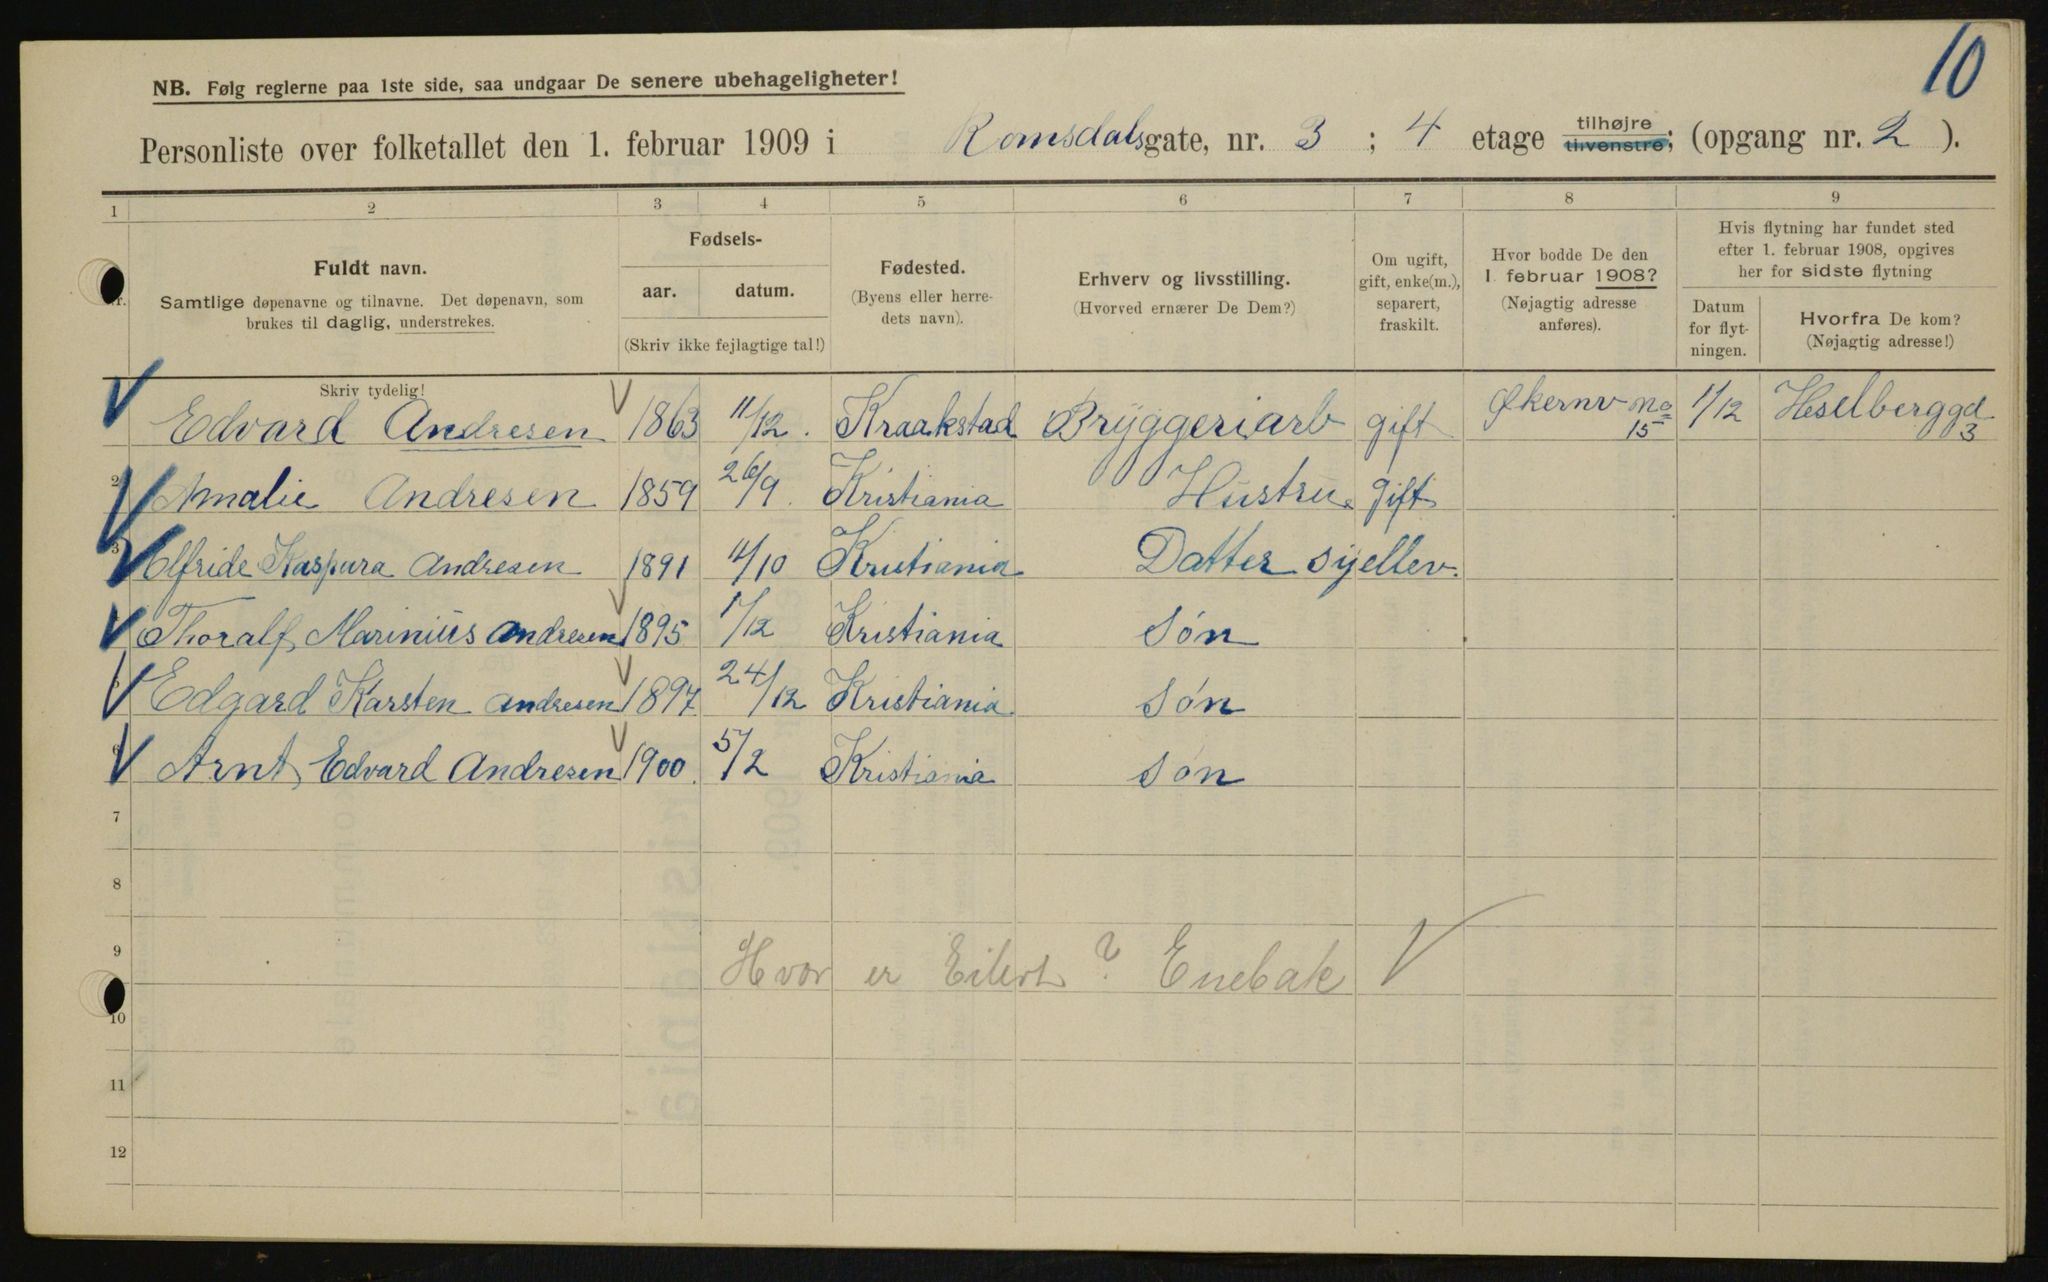 10
NB. Følg reglerne paa 1ste side, saa undgaar De senere ubehageligheter!
Personliste over folketallet den 1. februar 1909 i Romsdalsgate, nr. 3 ; 4 etage tilhøjre tilvenstre; (opgang nr. 2 ).
1 2 3 4 5 6 7 8 9
Nr.
Fuldt navn.
Samtlige døpenavne og tilnavne. Det døpenavn, som
brukes til daglig, understrekes.
Fødsels-
aar. datum.
(Skriv ikke fejlagtige tal!)
Fødested.
(Byens eller herre-
dets navn).
Erhverv og livsstilling.
(Hvorved ernærer De Dem?)
Om ugift,
gift, enke(m.),
separert,
fraskilt.
Hvor bodde De den
1. februar 1908?
(Nøjagtig adresse
anføres).
Hvis flytning har fundet sted
efter 1. februar 1908, opgives
her for sidste flytning
Datum
for flyt-
ningen.
Hvorfra De kom?
(Nøjagtig adresse!)
Skriv tydelig!
Edvard Andresen 1863 11/12. Kraakstad Bryggeriarb gift Økernv no 15 1/12 Heselberggd 3
2 Amalie Andresen 1859 26/9. Kristiania Hustru. gift
3 Elfride Kaspara Andresen 1891 4/10 Kristiania Datter syellev.
Thoralf Marinius Andresen 1895 1/12 Kristiania Søn
Edgard Karsten Andresen 1897 24/12 Kristiania Søn
6 Arnt Edvard Andresen 1900. 5/2 Kristiania Søn
7
8
9 Hvor er Eilert? Enebak
10
11
12